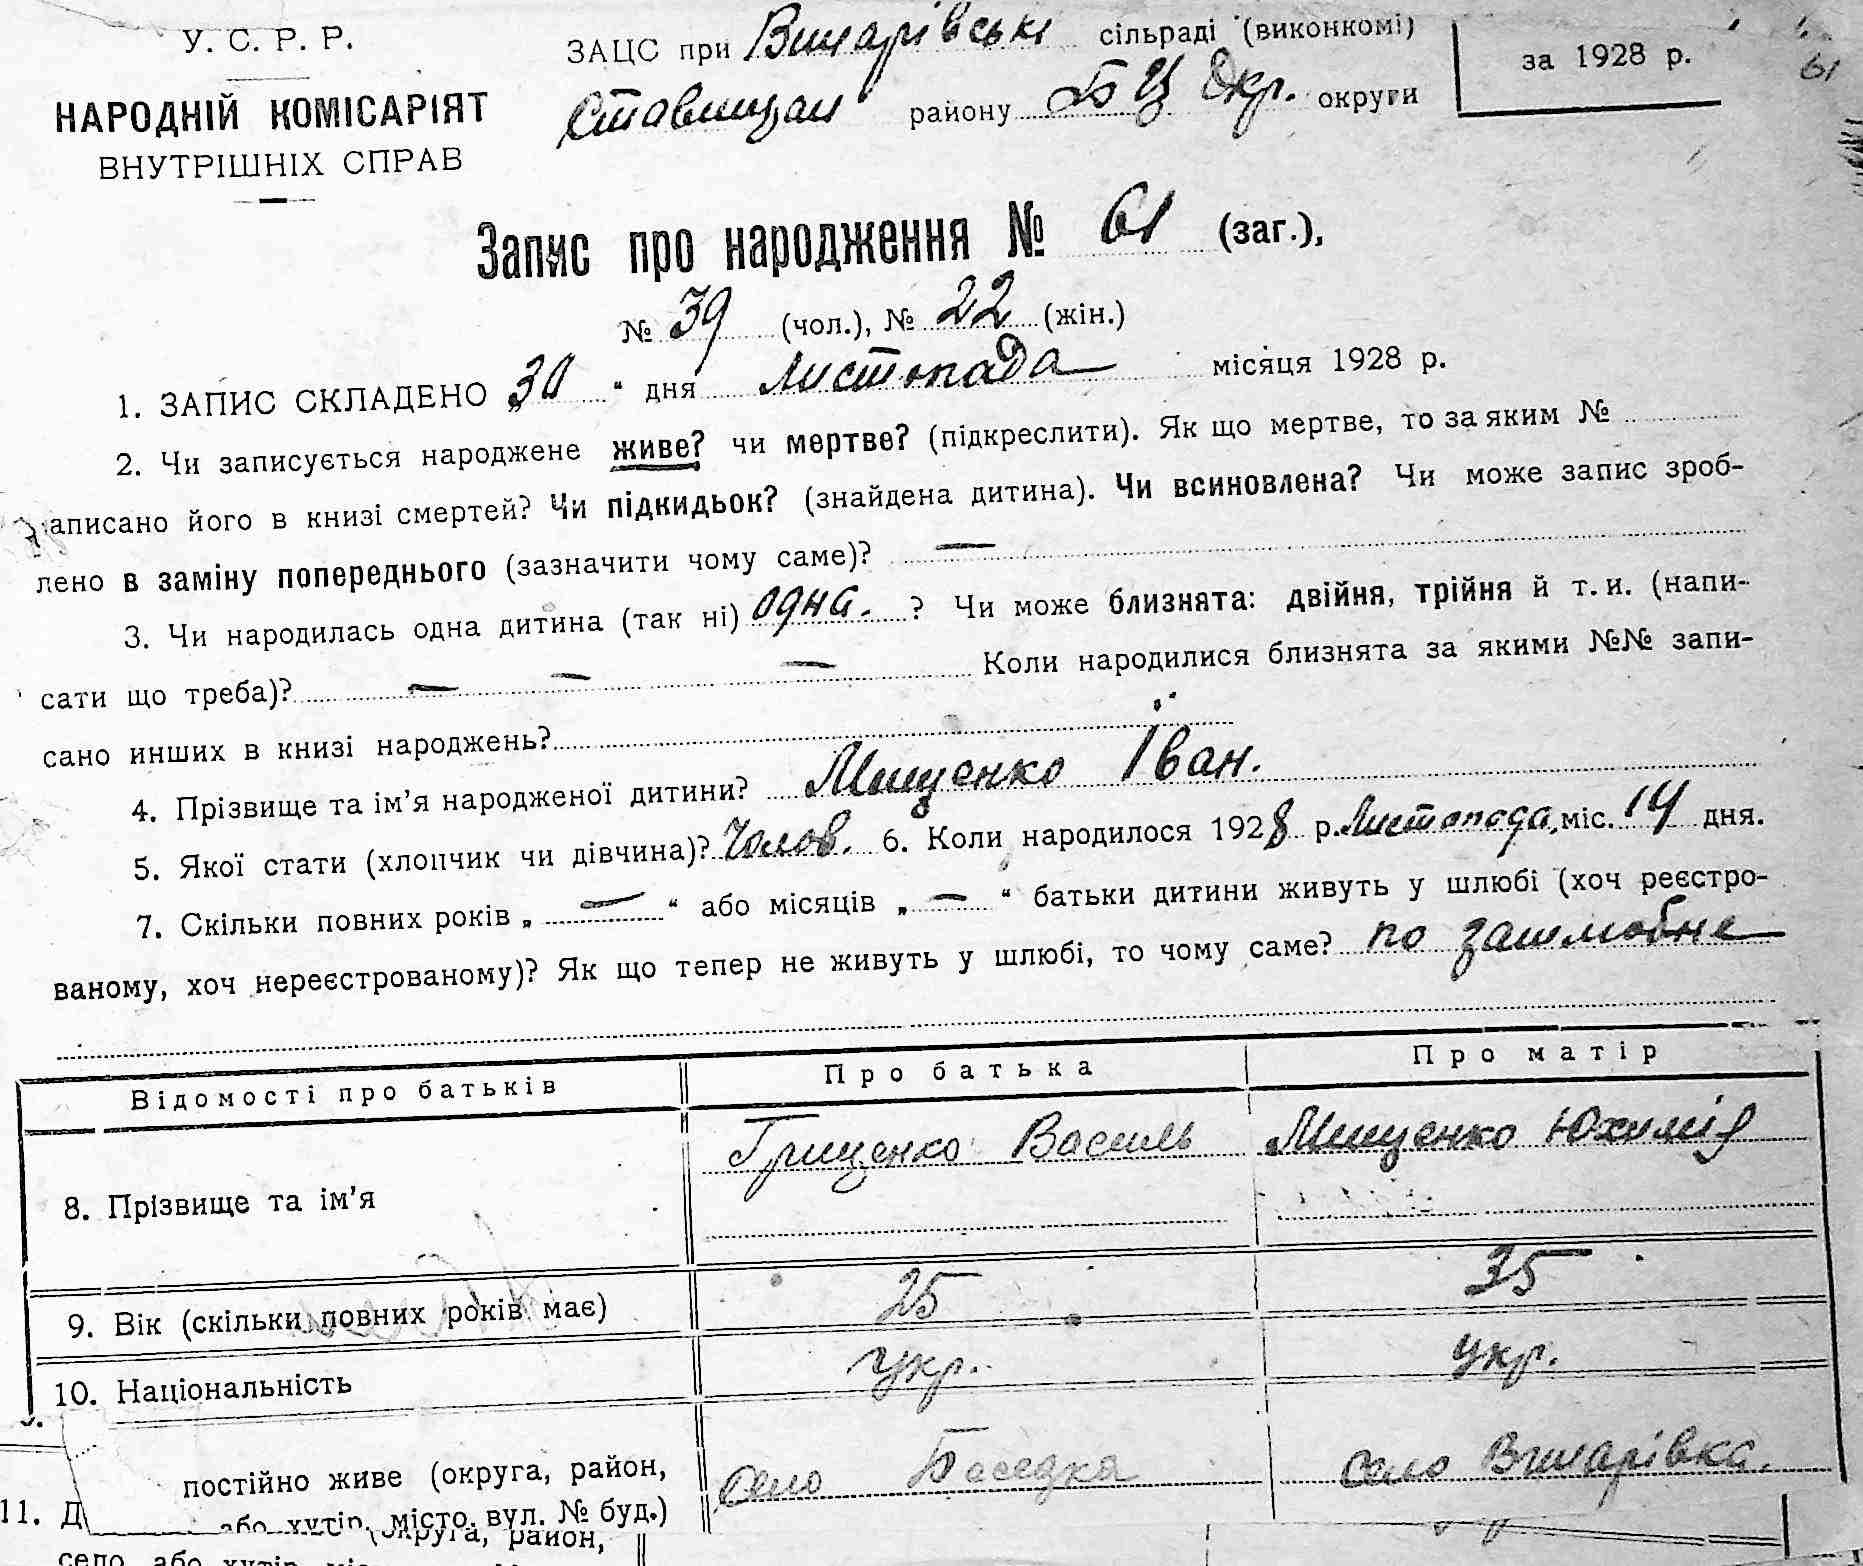 У. С. Р. Р.
НАРОДНІЙ КОМІСАРІЯТ
ВНУТРІШНІХ СПРАВ
ЗАЦС при Винарівські сільраді (виконкомі)
Ставищан району Б Ц Окр. округи
за 1928 р.
61
Запис про народження № 61 (заг.),
№ 39 (чол.), № 22 (жін.)
1. ЗАПИС СКЛАДЕНО „30“ дня Листопада місяця 1928 р.
2. Чи записується народжене живе? чи мертве? (підкреслити). Як що мертве, то за яким №
записано його в книзі смертей? Чи підкидьок? (знайдена дитина). Чи всиновлена? Чи може запис зроб-
лено в заміну попереднього (зазначити чому саме)? —
3. Чи народилась одна дитина (так ні) одна. ? Чи може близнята: двійня, трійня й т. и. (напи-
сати що треба)? — — — Коли народилися близнята за якими №№ запи-
сано инших в книзі народжень?
4. Прізвище та ім'я народженої дитини? Мищенко Іван.
5. Якої стати (хлопчик чи дівчина)? Чолов. 6. Коли народилося 1928 р. Листопада міс. 14 дня.
7. Скільки повних років „ — “ або місяців „ — “ батьки дитини живуть у шлюбі (хоч реєстро-
ваному, хоч нереєстрованому)? Як що тепер не живуть у шлюбі, то чому саме? по зашлюбне
Відомості про батьків Про батька Про матір
8. Прізвище та ім'я Грищенко Василь Мищенко Юхимія
9. Вік (скільки повних років має) 25 35
10. Національність укр. укр.
11. Д постійно живе (округа, район, село Баседка село Винарівка.
або хутір, місто, вул. № буд.)
(округа, район,
село або хутір